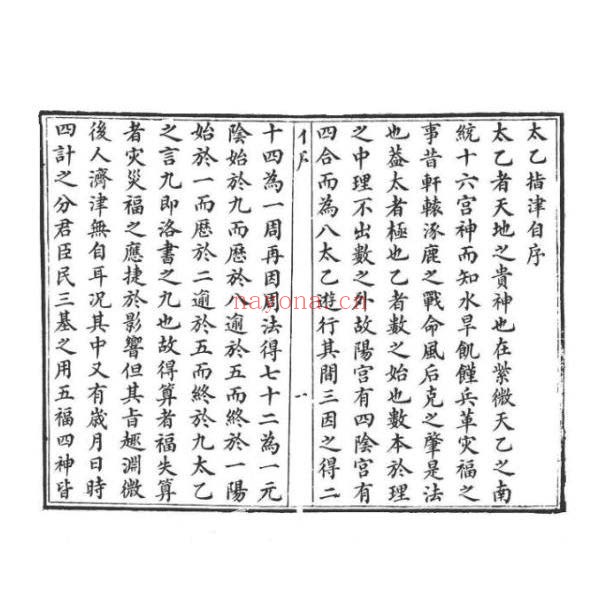 太乙指津自序
太乙者天地之貴神也在紫微天乙之南
統十六宮神而知水旱飢饉兵革灾福之
事昔軒轅涿鹿之戰命風后克之肇是法
也葢太者極也乙者數之始也數本於理
之中理不出數之外故陽宮有四陰宮有
四合而為八太乙遊行其間三因之得二
自序
一
十四為一周再因周法得七十二為一元
陰始於九而歷於八逾於五而終於一陽
始於一而歷於二逾於五而終於九太乙
之言九即洛書之九也故得算者福失算
者灾災福之應捷於影響但其旨趣淵微
後人濟津無自耳况其中又有歲月日時
四計之分君臣民三基之用五福四神皆
nayona.cn